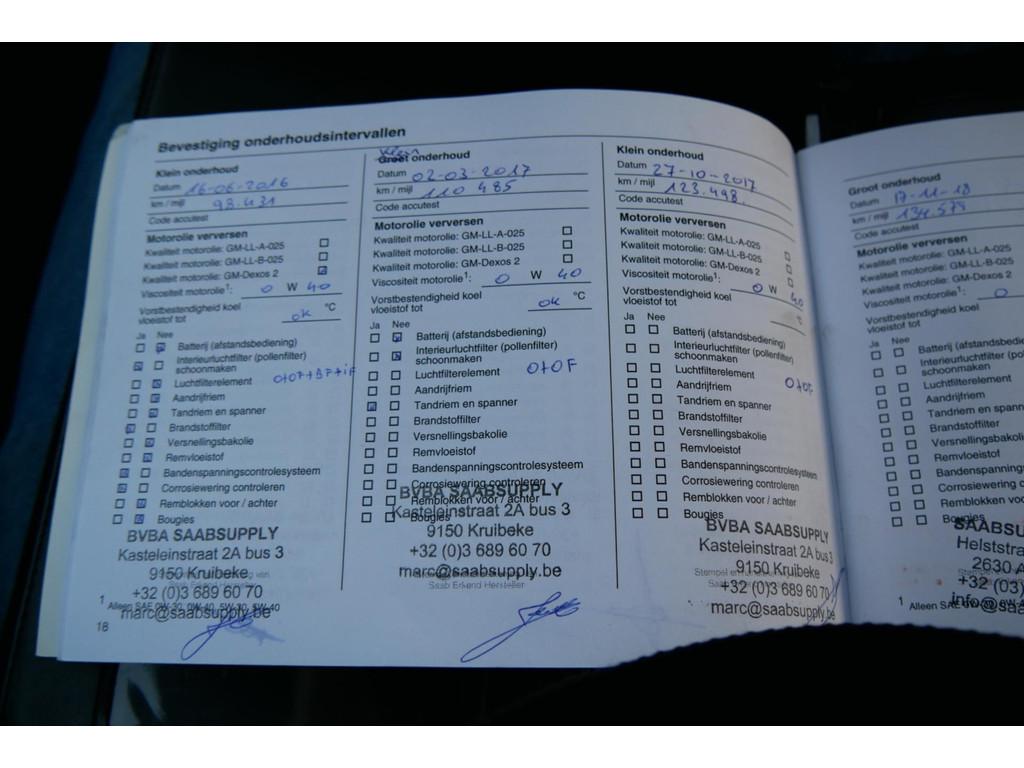 Bevestiging onderhoudsintervallen
Klein onderhoud
Datum 16-06-2016
km / mijl 98.431
Code accutest
Motorolie verversen
Kwaliteit motorolie: GM-LL-A-025
Kwaliteit motorolie: GM-LL-B-025
Kwaliteit motorolie: GM-Dexos 2
Viscositeit motorolie1: 0 W 40
Vorstbestendigheid koel
vloeistof tot ok °C
Ja Nee
Batterij (afstandsbediening)
Interieurluchtfilter (pollenfilter)
schoonmaken
Luchtfilterelement O+OF+BF+iF
Aandrijfriem
Tandriem en spanner
Brandstoffilter
Versnellingsbakolie
Remvloeistof
Bandenspanningscontrolesysteem
Corrosiewering controleren
Remblokken voor / achter
Bougies
BVBA SAABSUPPLY
Kasteleinstraat 2A bus 3
9150 Kruibeke
+32 (0)3 689 60 70
marc@saabsupply.be
1 Alleen SAE 0W-30, 0W-40, 5W-30, 5W-40
18
Klein
Groot onderhoud
Datum 02-03-2017
km / mijl 110 485
Code accutest
Motorolie verversen
Kwaliteit motorolie: GM-LL-A-025
Kwaliteit motorolie: GM-LL-B-025
Kwaliteit motorolie: GM-Dexos 2
Viscositeit motorolie1: 0 W 40
Vorstbestendigheid koel
vloeistof tot ok °C
Ja Nee
Batterij (afstandsbediening)
Interieurluchtfilter (pollenfilter)
schoonmaken
Luchtfilterelement O+OF
Aandrijfriem
Tandriem en spanner
Brandstoffilter
Versnellingsbakolie
Remvloeistof
Bandenspanningscontrolesysteem
Corrosiewering controleren
Remblokken voor / achter
Bougies
BVBA SAABSUPPLY
Kasteleinstraat 2A bus 3
9150 Kruibeke
+32 (0)3 689 60 70
marc@saabsupply.be
Saab Erkend Hersteller
Klein onderhoud
Datum 27-10-2017
km / mijl 123.498
Code accutest
Motorolie verversen
Kwaliteit motorolie: GM-LL-A-025
Kwaliteit motorolie: GM-LL-B-025
Kwaliteit motorolie: GM-Dexos 2
Viscositeit motorolie1: 0 W 40
Vorstbestendigheid koel
vloeistof tot °C
Ja Nee
Batterij (afstandsbediening)
Interieurluchtfilter (pollenfilter)
schoonmaken
Luchtfilterelement O+OF
Aandrijfriem
Tandriem en spanner
Brandstoffilter
Versnellingsbakolie
Remvloeistof
Bandenspanningscontrolesysteem
Corrosiewering controleren
Remblokken voor / achter
Bougies
BVBA SAABSUPPLY
Kasteleinstraat 2A bus 3
9150 Kruibeke
+32 (0)3 689 60 70
marc@saabsupply.be
Groot onderhoud
Datum 17-11-18
km / mijl 134.579
Code accutest
Motorolie verversen
Kwaliteit motorolie: GM-LL-A-025
Kwaliteit motorolie: GM-LL-B-025
Kwaliteit motorolie: GM-Dexos 2
Viscositeit motorolie1: 0
Vorstbestendigheid koel
vloeistof tot
Ja Nee
Batterij (afstandsbedie
Interieurluchtfilter (po
schoonmaken
Luchtfilterelement
Aandrijfriem
Tandriem en spanner
Brandstoffilter
Versnellingsbakoli
Remvloeistof
Bandenspanningsco
Corrosiewering contro
Remblokken voor / ach
Bougies
SAABSU
Helststra
2630 A
+32 (03)
info@saa
1 Alleen SAE 0W